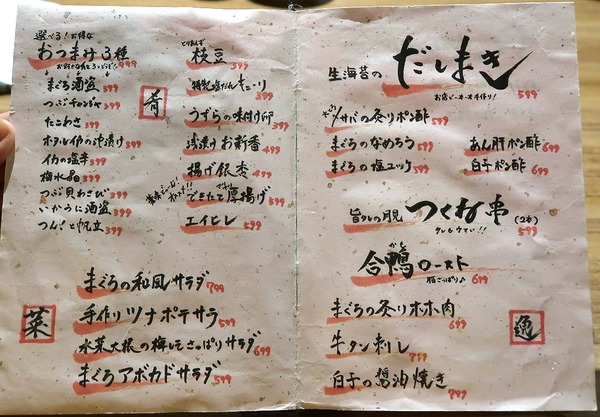 選べる!お得な
おつまみ3種
お好きな肴を3つどうぞ! 999
まぐろ酒盗 399
つぶチャンジャ 399
たこわさ 399
ホタルイカの沖漬け 399
イカの塩辛 399
梅水晶 399
つぶ貝わさび 399
いかうに酒盗 399
つんと帆立 399
肴
とりあえず
枝豆 399
特製塩だれキューリ 399
うずらの味付け卵 399
浅漬けお新香 499
揚げ銀杏 499
できたて厚揚げ 599
エイヒレ 599
菜
まぐろの和風サラダ 799
手作りツナポテサラ 599
水菜大根の梅しそさっぱりサラダ 699
まぐろアボカドサラダ 599
生海苔のだしまき 599
お店で一本一本手作り!
〆サバの炙りポン酢 599
まぐろのなめろう 599
まぐろの塩ユッケ 599
あん肝ポン酢 699
白子ポン酢 699
旨タレの月見つくね串(2本) 599
タレもウマい!!
合鴨ロースト 699
脂さっぱり♪
まぐろの炙りホホ肉 699
牛タン刺し 759
白子の醤油焼き 799
逸